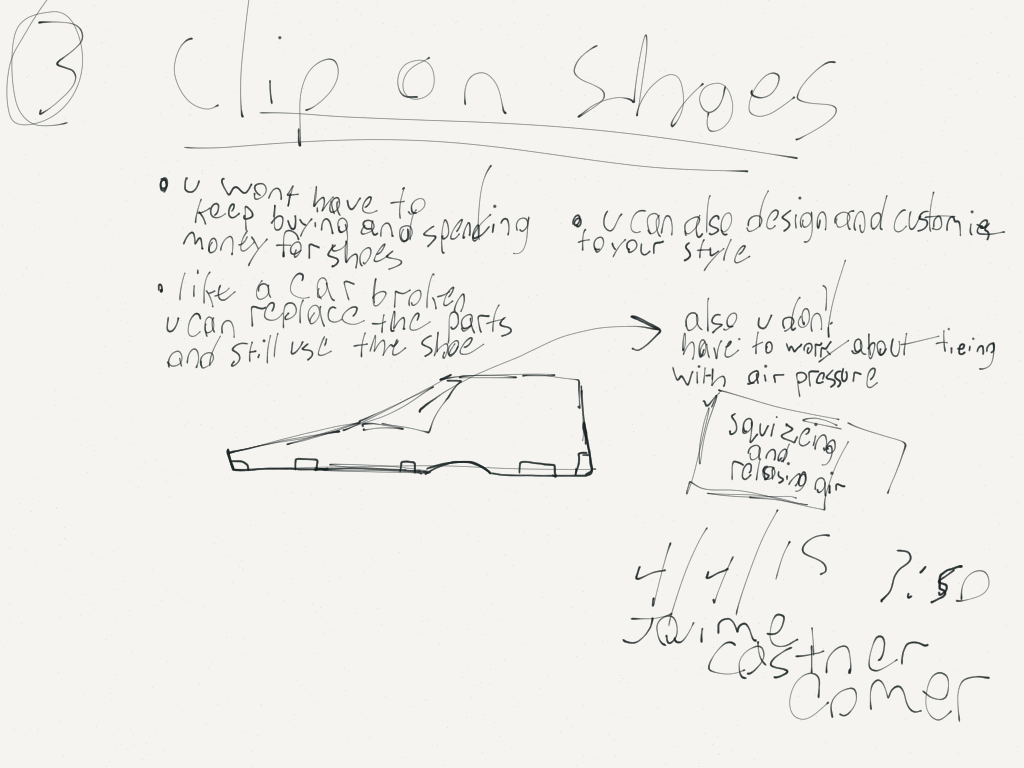 3
Clip on Shoes
• u wont have to
keep buying and spending
money for shoes
• like a car broken
u can replace the parts
and still use the shoe
• u can also design and customie
to your style
also u dont
have to work about tieing
with air pressure
squizcing
and
relasing air
4/4/15 7:50
Jaime
Castner
comer